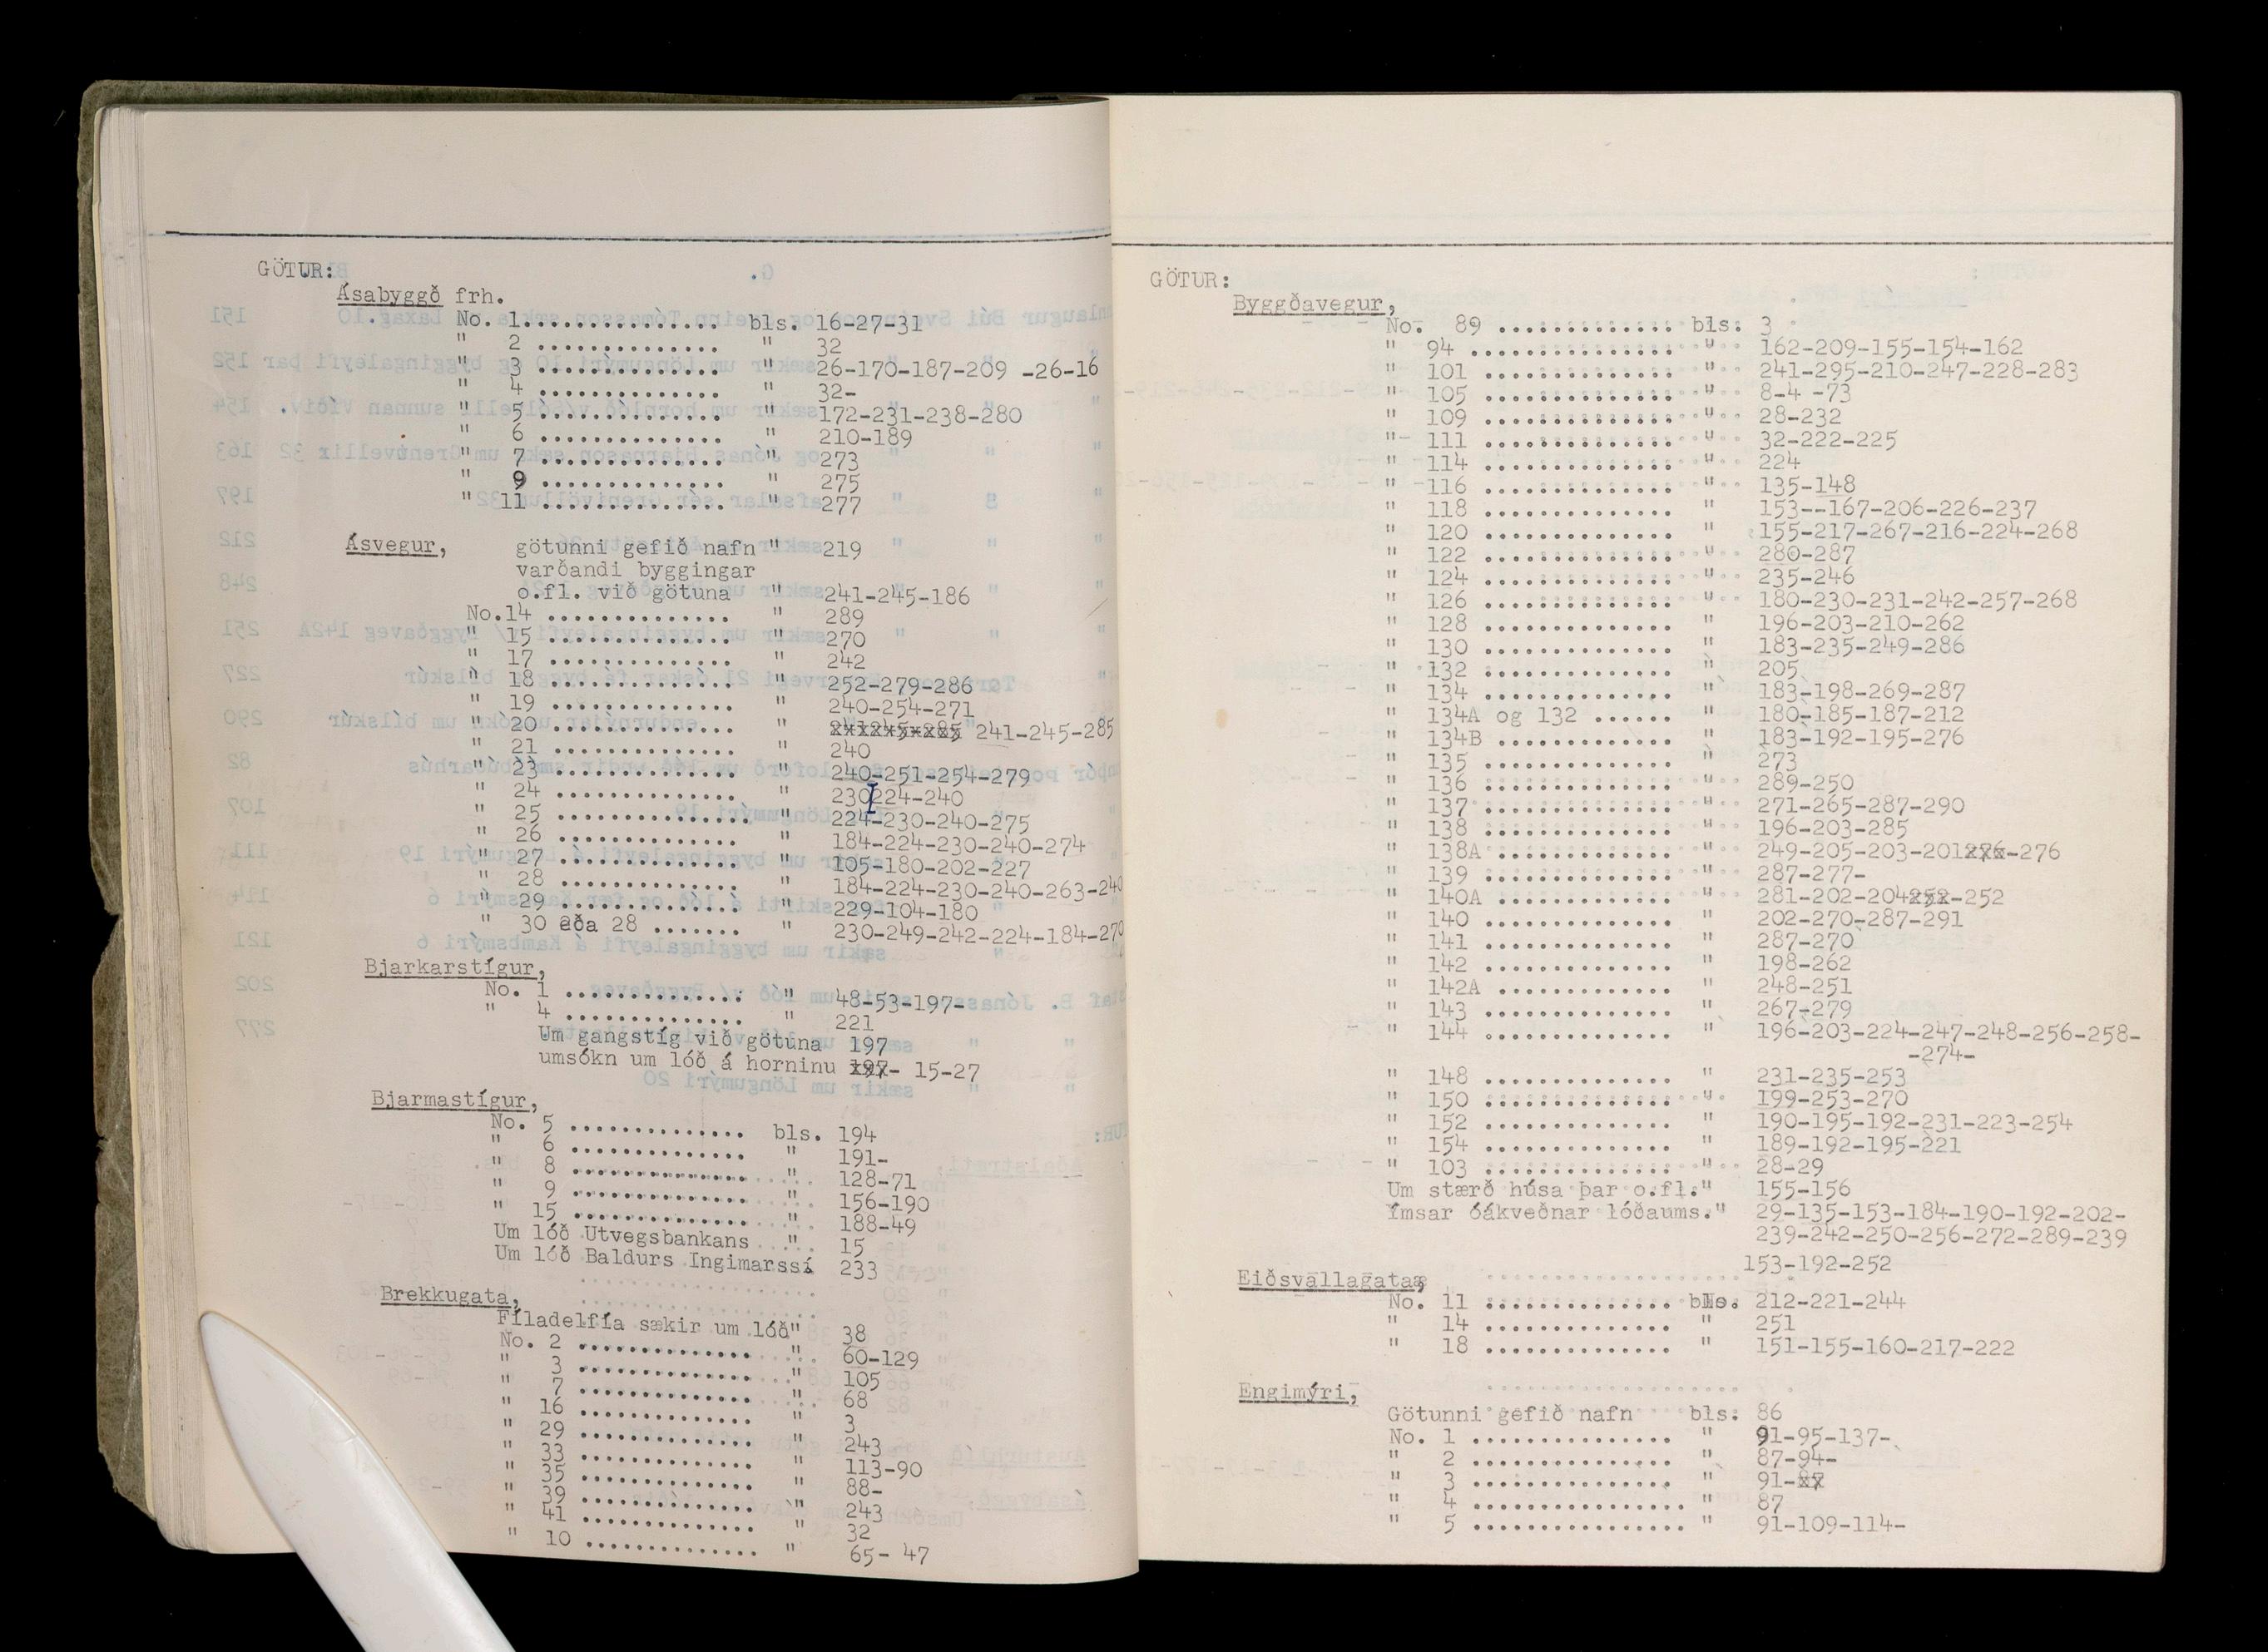 GÖTUR:
Ásabyggð frh.
No. 1............... bls. 16-27-31
" 2 .............. " 32
" 3 .............. " 26-170-187-209 -26-16
" 4 .............. " 32-
" 5 .............. " 172-231-238-280
" 6 .............. " 210-189
" 7 .............. " 273
" 9 .............. " 275
" 11 .............. " 277
Ásvegur, götunni gefið nafn " 219
varðandi byggingar
o.fl. við götuna " 241-245-186
No.14 .............. " 289
" 15 .............. " 270
" 17 .............. " 242
" 18 .............. " 252-279-286
" 19 .............. " 240-254-271
" 20 .............. " 241-245-285
" 21 .............. " 240
" 23 .............. " 240-251-254-279
" 24 .............. " 230 224-240
" 25 ............... " 224-230-240-275
" 26 .............. " 184-224-230-240-274
" 27 .............. " 105-180-202-227
" 28 .............. " 184-224-230-240-263-240
" 29 .............. " 229-104-180
" 30 eða 28 ....... " 230-249-242-224-184-270
Bjarkarstígur,
No. 1 .............. " 48-53-197-
" 4 .............. " 221
Um gangstíg við götuna 197
umsókn um lóð á horninu - 15-27
Bjarmastígur,
No. 5 .............. bls. 194
" 6 .............. " 191-
" 8 .............. " 128-71
" 9 .............. " 156-190
" 15 .............. " 188-49
Um lóð Utvegsbankans " 15
Um lóð Baldurs Ingimarssí 233
Brekkugata,
Fíladelfía sækir um lóð" 38
No. 2 .............. " 60-129
" 3 .............. " 105
" 7 .............. " 68
" 16 .............. " 3
" 29 .............. " 243
" 33 .............. " 113-90
" 35 .............. " 88-
" 39 .............. " 243
" 41 .............. " 32
" 10 .............. " 65- 47
GÖTUR:
Byggðavegur,
No. 89 ............. bls. 3
" 94 ............... " 162-209-155-154-162
" 101 .............. " 241-295-210-247-228-283
" 105 .............. " 8-4 -73
" 109 .............. " 28-232
" 111 .............. " 32-222-225
" 114 .............. " 224
" 116 .............. " 135-148
" 118 .............. " 153--167-206-226-237
" 120 .............. " 155-217-267-216-224-268
" 122 .............. " 280-287
" 124 .............. " 235-246
" 126 .............. " 180-230-231-242-257-268
" 128 .............. " 196-203-210-262
" 130 .............. " 183-235-249-286
" 132 .............. " 205
" 134 .............. " 183-198-269-287
" 134A og 132 ...... " 180-185-187-212
" 134B ............. " 183-192-195-276
" 135 .............. " 273
" 136 .............. " 289-250
" 137 .............. " 271-265-287-290
" 138 .............. " 196-203-285
" 138A ............. " 249-205-203-201-276
" 139 .............. " 287-277-
" 140A ............. " 281-202-204-252
" 140 .............. " 202-270-287-291
" 141 .............. " 287-270
" 142 .............. " 198-262
" 142A ............. " 248-251
" 143 .............. " 267-279
" 144 .............. " 196-203-224-247-248-256-258-
-274-
" 148 .............. " 231-235-253
" 150 .............. " 199-253-270
" 152 .............. " 190-195-192-231-223-254
" 154 .............. " 189-192-195-221
" 103 .............. " 28-29
Um stærð húsa þar o.fl." 155-156
Ímsar óákveðnar lóðaums." 29-135-153-184-190-192-202-
239-242-250-256-272-289-239
153-192-252
Eiðsvallagata,
No. 11 .............. bls. 212-221-244
" 14 .............. " 251
" 18 .............. " 151-155-160-217-222
Engimýri,
Götunni gefið nafn bls. 86
No. 1 ............... " 91-95-137-
" 2 ............... " 87-94-
" 3 ............... " 91-
" 4 ................ " 87
" 5 ................ " 91-109-114-